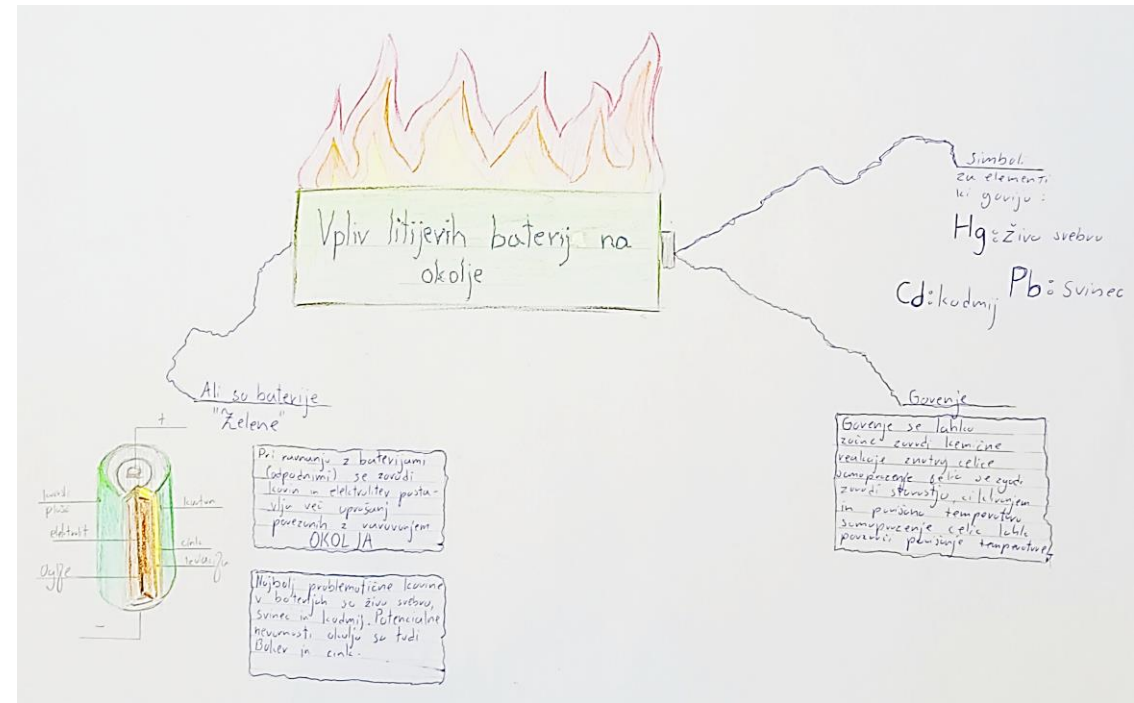 Vpliv litijevih baterij na
okolje
Simbol.
za elementi
ki gorijo :
Hg: živo srebro
Cd: kadmij
Pb: svinec
Ali so baterije
"Zelene"
Pri ravnanju z baterijami
(odpadnimi) se zaradi
kovin in elektrolitov posta-
vlja več vprašanj
povezanih z varovanjem
OKOLJA
Najbolj problematične kovine
v baterijah so živo srebro,
svinec in kadmij. Potencialne
nevarnosti okolju so tudi
Baker in cink.
+
karton
elektrolit
cink
oglje
-
Gorenje
Gorenje se lahko
začne zaradi kemične
reakcije znotraj celice
samopraznenje celic se zgodi
zaradi starostjo, cikliranjem
in povišano temperaturo
samopraznenje celic lahko
povzroči povišanje temperature